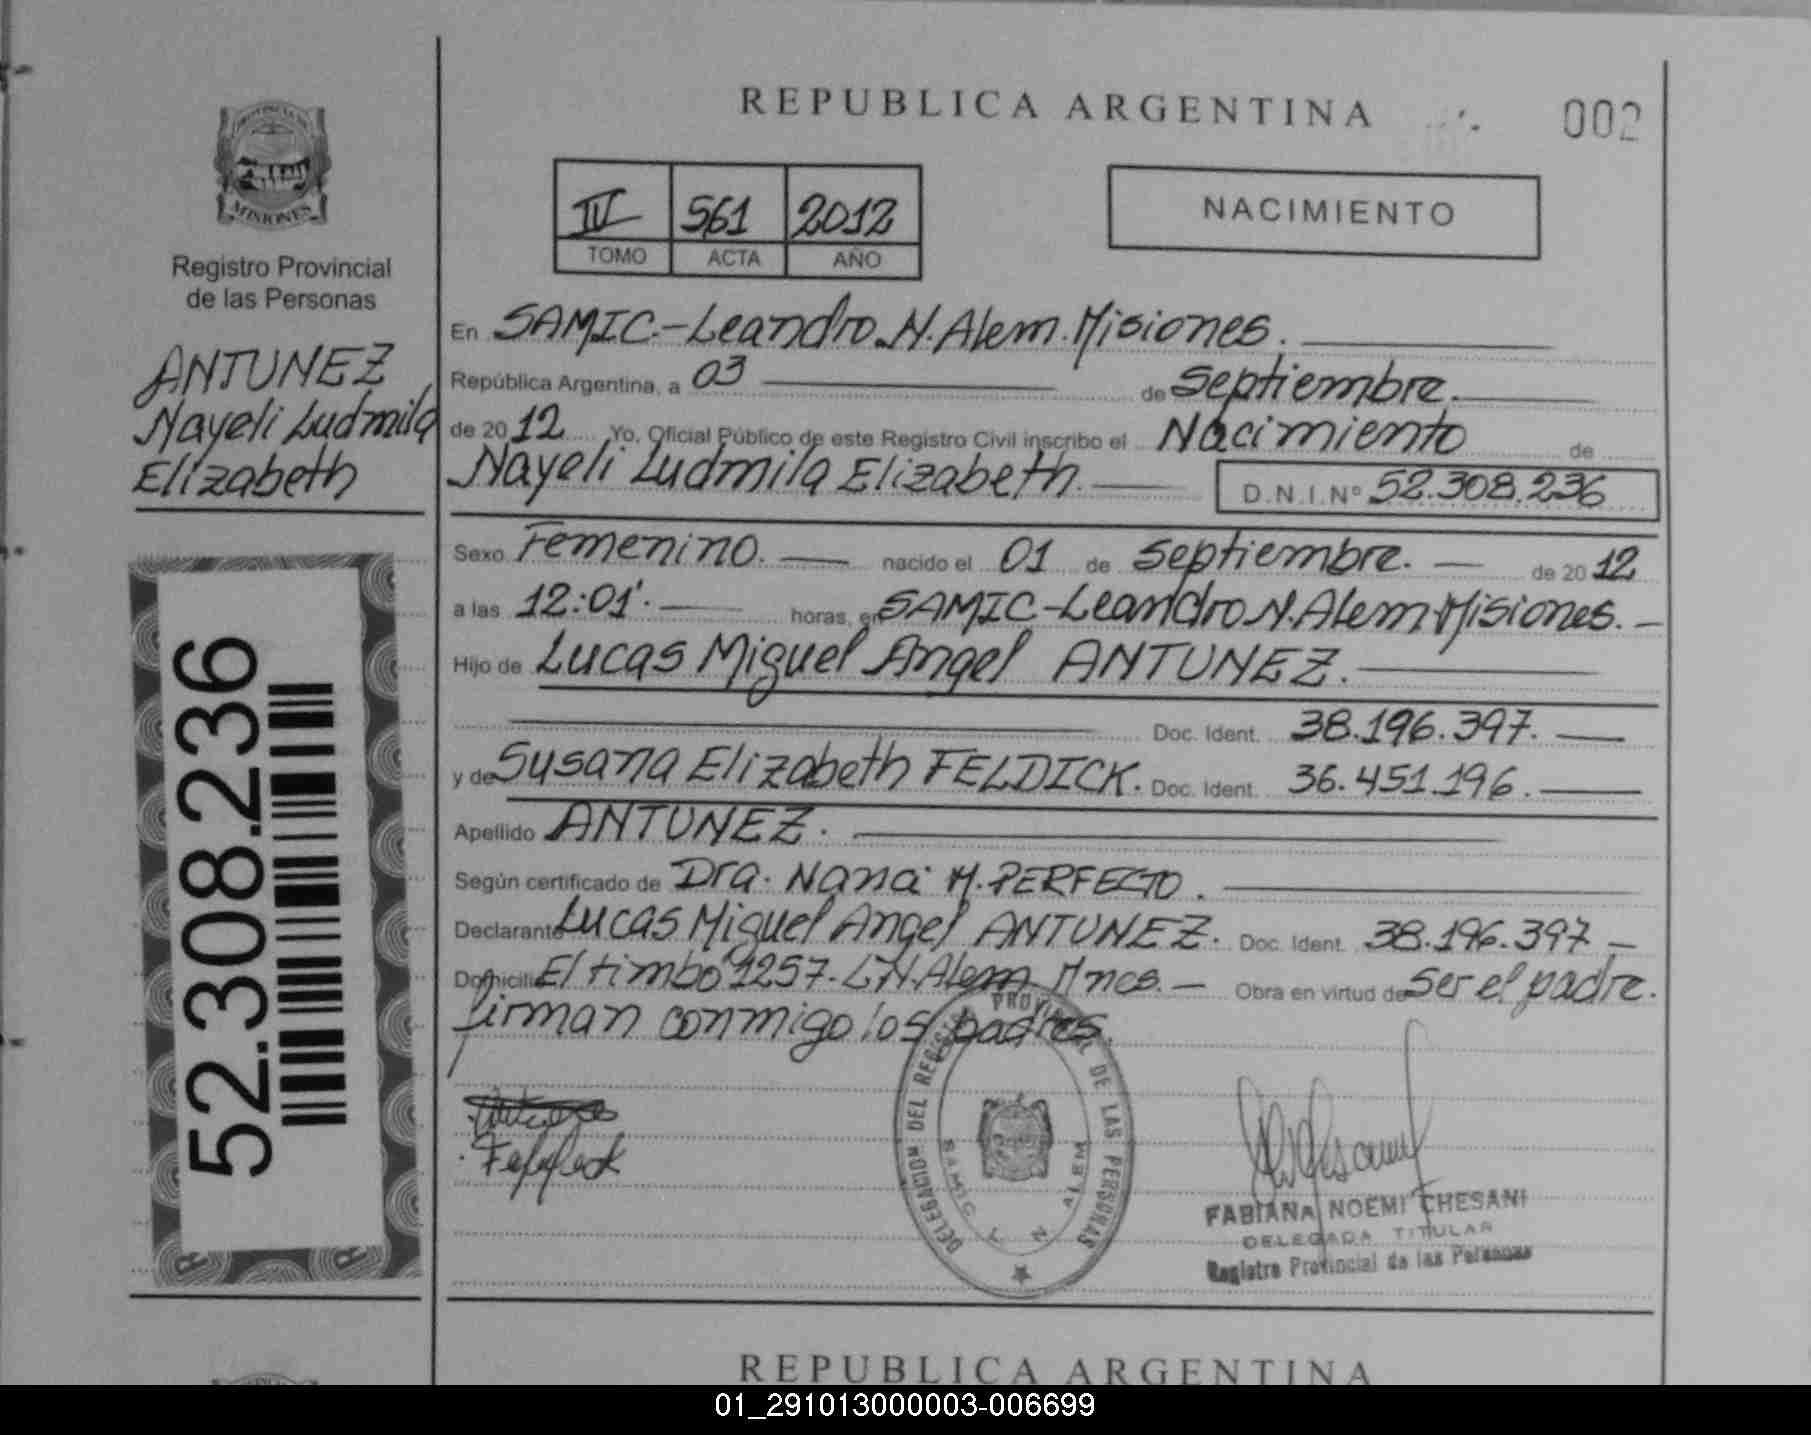 REPUBLICA ARGENTINA
002
MISIONES
Registro Provincial
de las Personas
ANTUNEZ
Nayeli Ludmila
Elizabeth
52.308.236
IV 561 2012
TOMO ACTA AÑO
NACIMIENTO
En SAMIC.-Leandro.N.Alem.Misiones.
República Argentina, a 03 de Septiembre.
de 2012 Yo, Oficial Público de este Registro Civil inscribo el Nacimiento de
Nayeli Ludmila Elizabeth. D.N.I.Nº 52.308.236
Sexo Femenino. nacido el 01 de Septiembre. de 2012
a las 12:01'. horas, en SAMIC-Leandro N.Alem Misiones.
Hijo de Lucas Miguel Angel ANTUNEZ.
Doc. Ident. 38.196.397.
y de Susana Elizabeth FELDICK. Doc. Ident. 36.451.196.
Apellido ANTUNEZ.
Según certificado de Dra. M. PERFECTO.
Declarante Lucas Miguel Angel ANTUNEZ. Doc. Ident. 38.196.397
Domicilio El timbo 1257. L.N.Alem Mnes. Obra en virtud de Ser el padre.
firman conmigo los padres.
DELEGACION DEL REGISTRO PROVINCIAL DE LAS PERSONAS
SAMIC L N ALEM
FABIANA NOEMI CHESANI
DELEGADA TITULAR
Registro Provincial de las Personas
REPUBLICA ARGENTINA
01_291013000003-006699